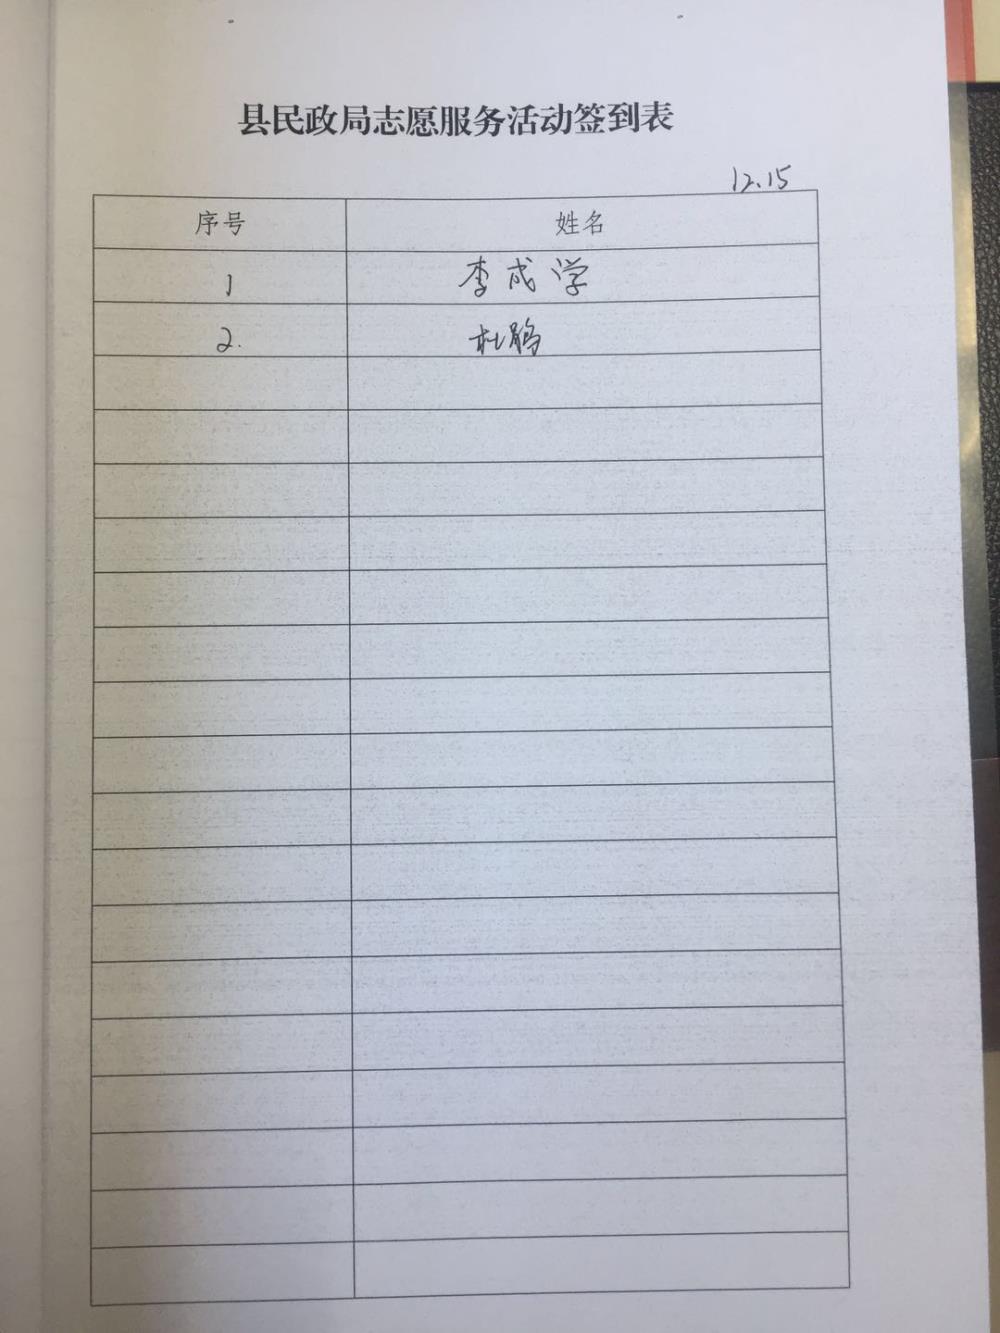 县民政局志愿服务活动签到表
12.15
序号 姓名
1 李成学
2. 杜鹃